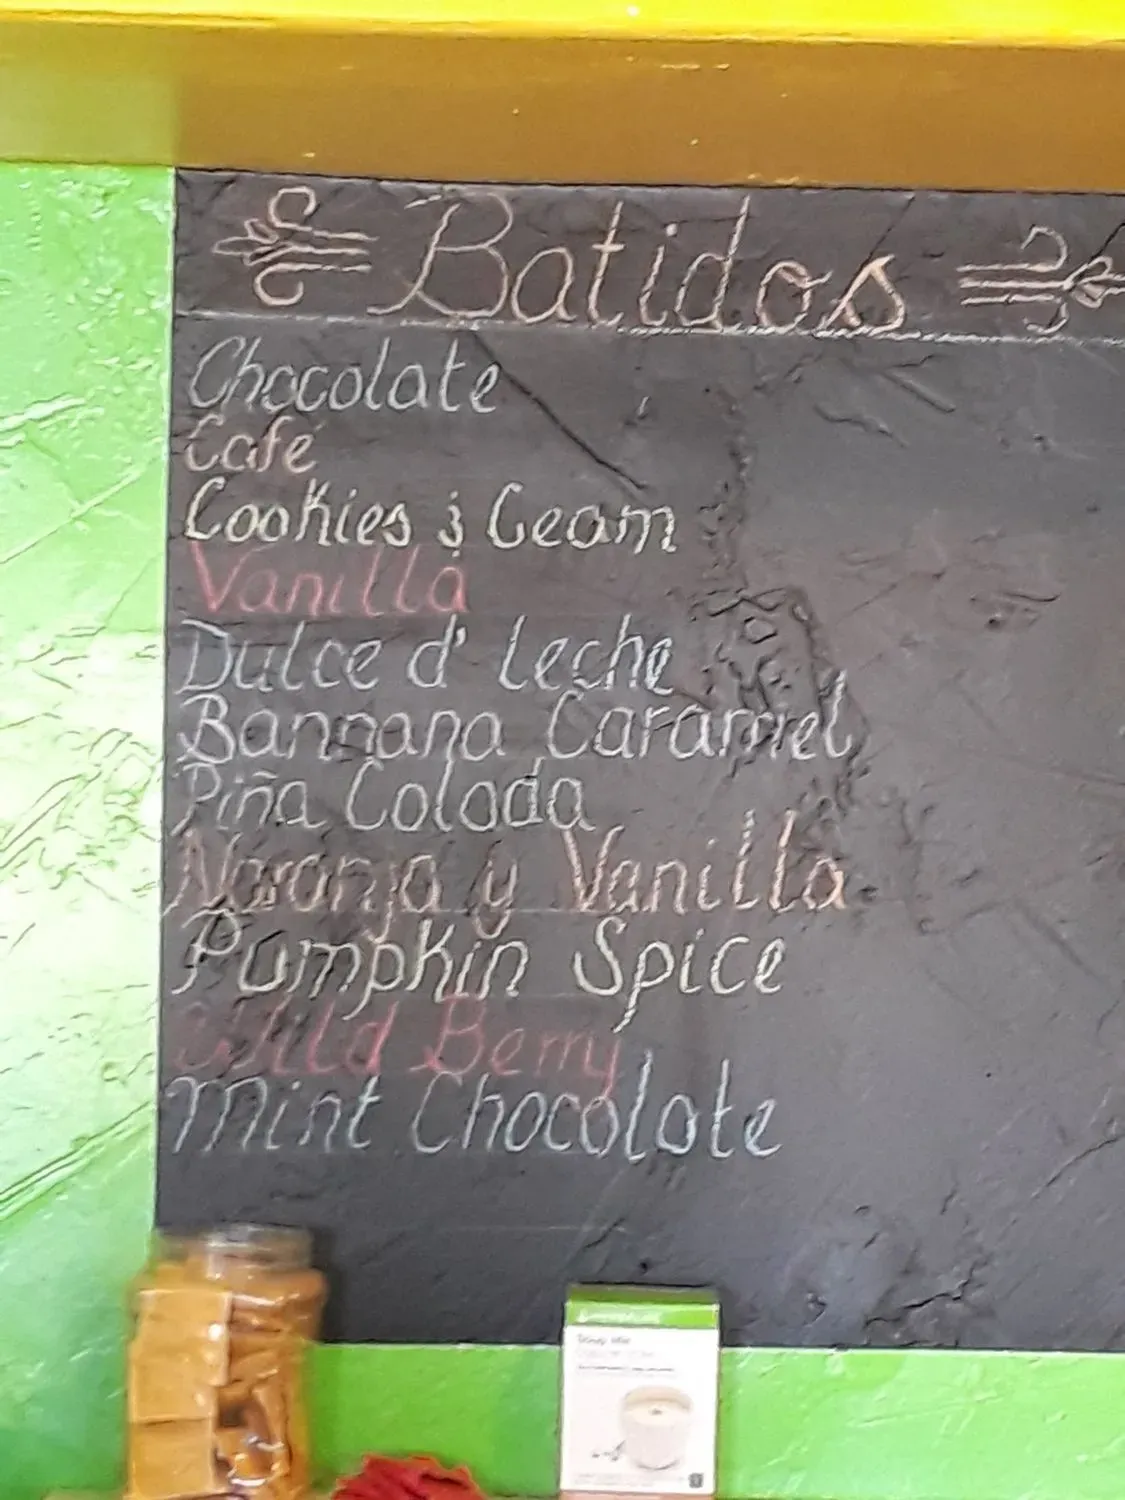 Batidos
Chocolate
Café
Cookies & Ceam
Vanilla
Dulce d' Leche
Bannana Caramel
Piña Colada
Naranja y Vanilla
Pumpkin Spice
Wild Berry
Mint Chocolate
Soup Mix